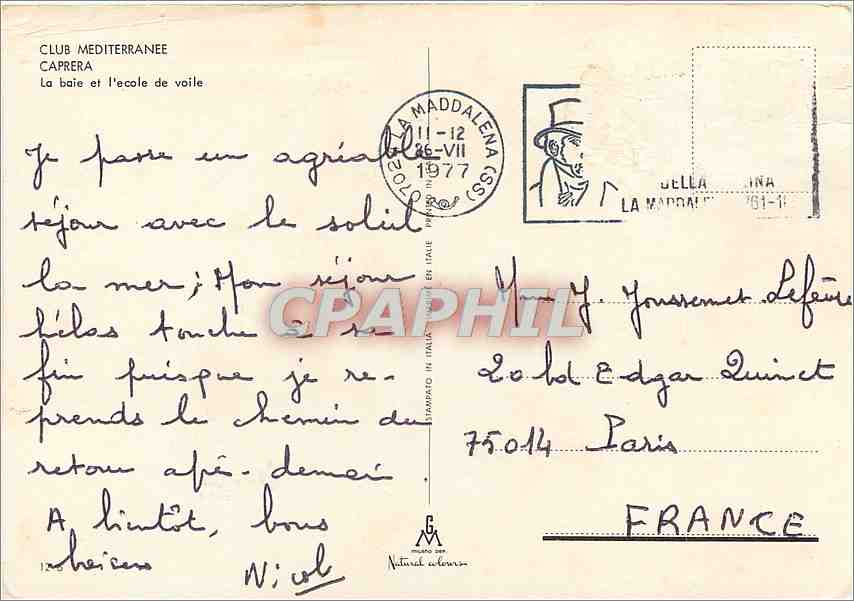 CLUB MEDITERRANEE
CAPRERA
La baie et l'ecole de voile
Je passe un agréable
séjour avec le soleil
la mer; Mon séjour
hélas touche à sa
fin puisque je re-
prends le chemin du
retour après-demain
A bientôt, bons
baisers
Nicole
07024 LA MADDALENA (SS)
11-12
26-VII
1977
DELLA
LA MADDALE
STAMPATO IN ITALIA IMPRIMÉ EN ITALIE PRINTED IN
CPAPHIL
J. Joussemet Lefèvre
20 bd Edgar Quinet
75014 Paris
FRANCE
GM
MILANO DEP.
Natural colours